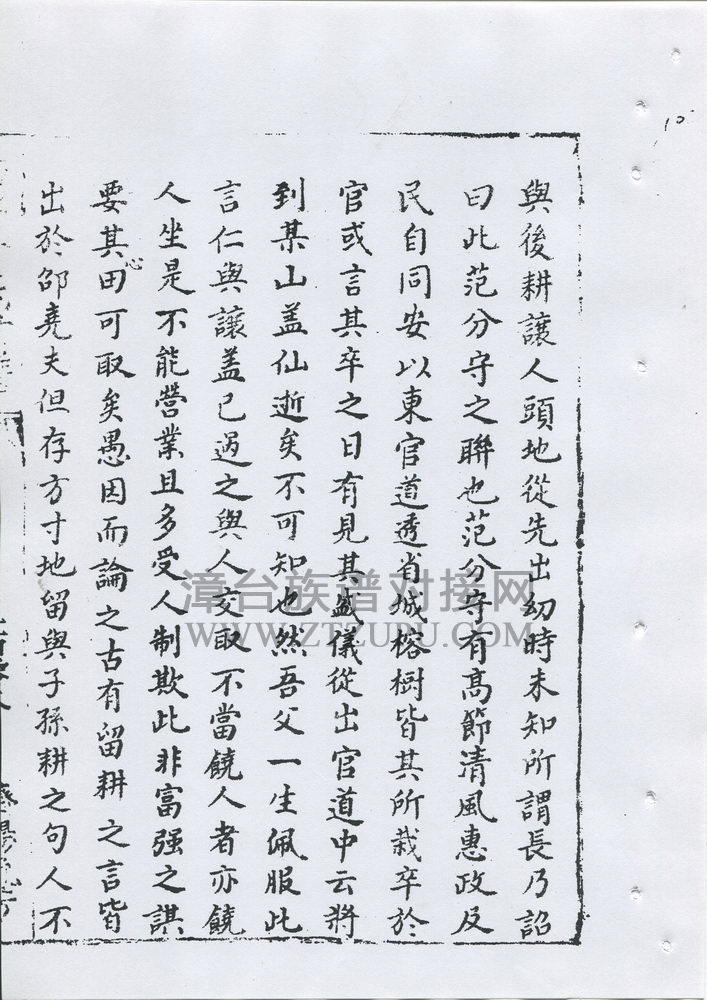 10
與後耕讓人頭地從先出幼時未知所謂長乃詔
曰此范分守之聯也范分守有高節清風惠政及
民自同安以東官道透省城榕樹皆其所栽卒於
官或言其卒之日有見其盛儀從出官道中云將
到某山盖仙逝矣不可知也然吾父一生佩服此
言仁與讓盖已過之與人交取不當饒人者亦饒
人坐是不能營業且多受人制欺此非富强之諆
要其心田可取矣愚因而論之古有留耕之言皆
出於邵堯夫但存方寸地留與子孫耕之句人不
漳台族谱对接网
WWW.ZTZUPU.COM